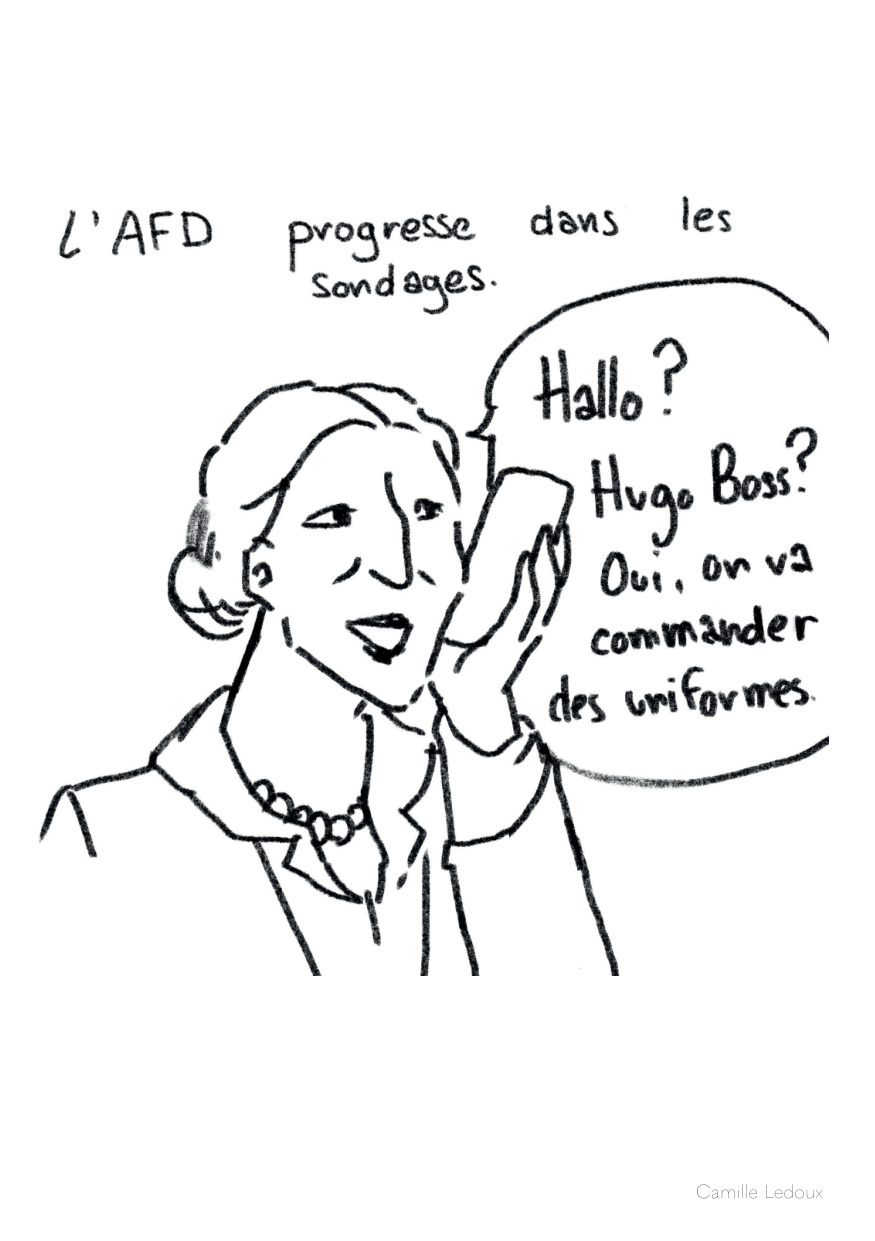 L'AFD progresse dans les
sondages.
Hallo?
Hugo Boss?
Oui, on va
commander
des uniformes.
Camille Ledoux